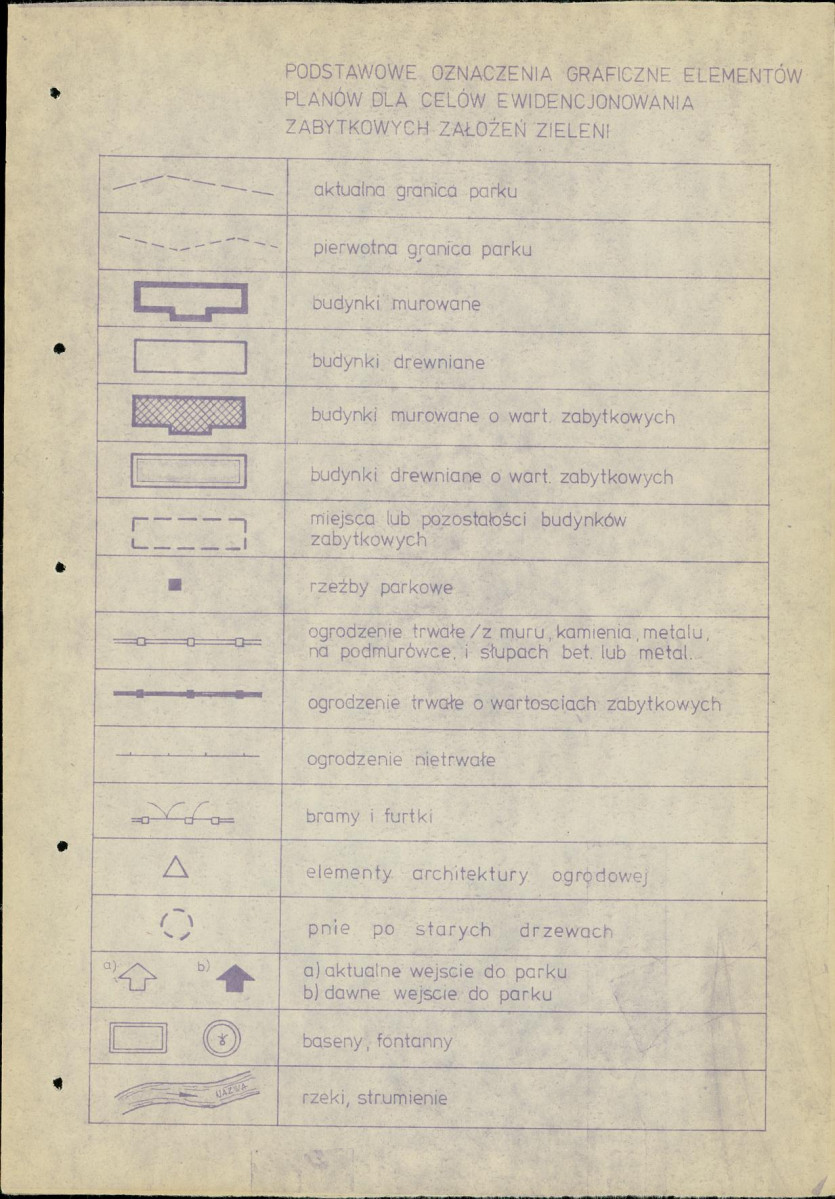 PODSTAWOWE OZNACZENIA GRAFICZNE ELEMENTÓW
PLANÓW DLA CELÓW EWIDENCJONOWANIA
ZABYTKOWYCH ZAŁOŻEŃ ZIELENI
aktualna granica parku
pierwotna granica parku
budynki murowane
budynki drewniane
budynki murowane o wart. zabytkowych
budynki drewniane o wart. zabytkowych
miejsca lub pozostałości budynków
zabytkowych
rzeźby parkowe
ogrodzenie trwałe /z muru, kamienia, metalu,
na podmurówce, i słupach bet. lub metal.
ogrodzenie trwałe o wartosciach zabytkowych
ogrodzenie nietrwałe
bramy i furtki
elementy architektury ogrodowej
pnie po starych drzewach
a) b) a) aktualne wejscie do parku
b) dawne wejscie do parku
baseny, fontanny
NAZWA rzeki, strumienie